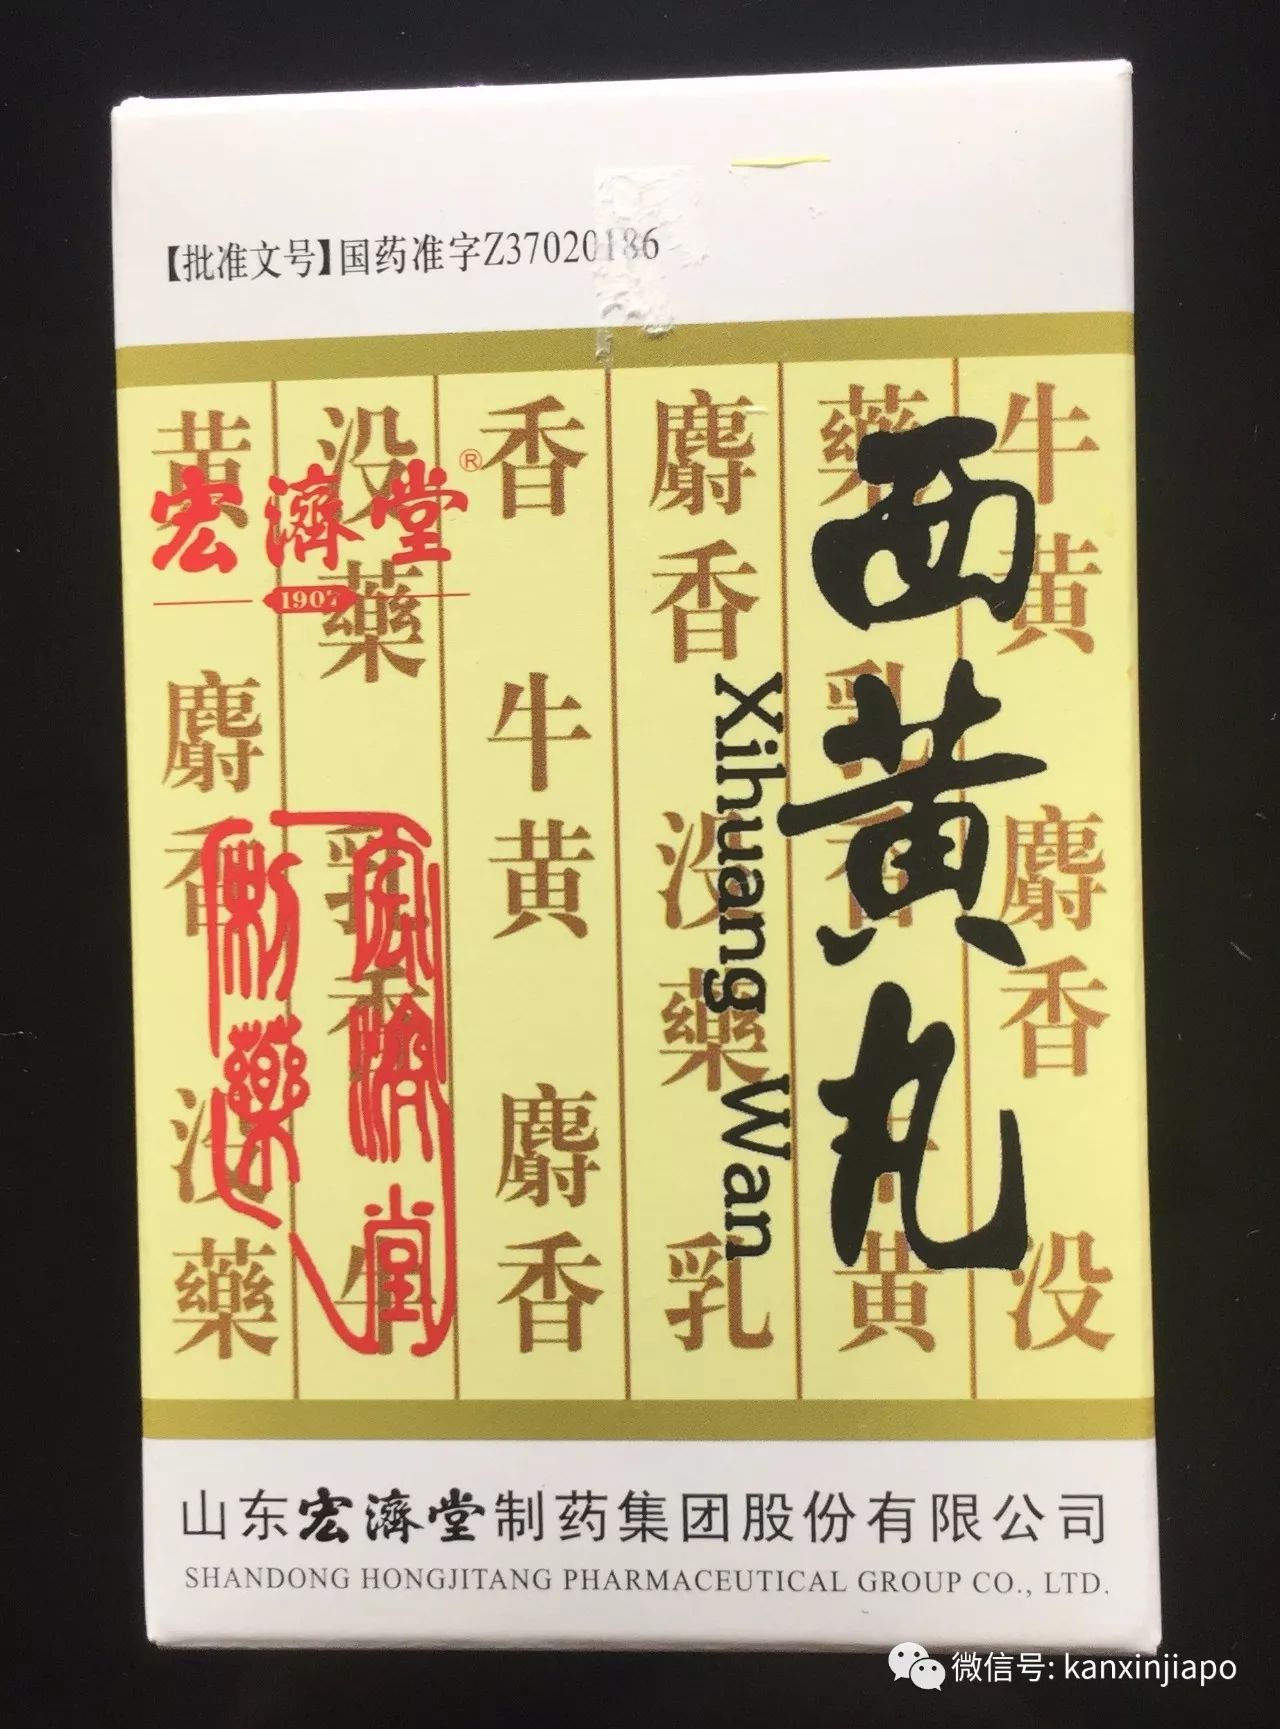 【批准文号】国药准字Z37020186
牛黄 麝香 没
藥 乳香 牛黄
麝香 没藥 乳
香 牛黄 麝香
没藥 乳香 牛
黄 麝香 没藥
西黄丸
Xihuang Wan
宏濟堂®
1907
宏濟堂
制藥
山东宏濟堂制药集团股份有限公司
SHANDONG HONGJITANG PHARMACEUTICAL GROUP CO., LTD.
微信号: kanxinjiapo